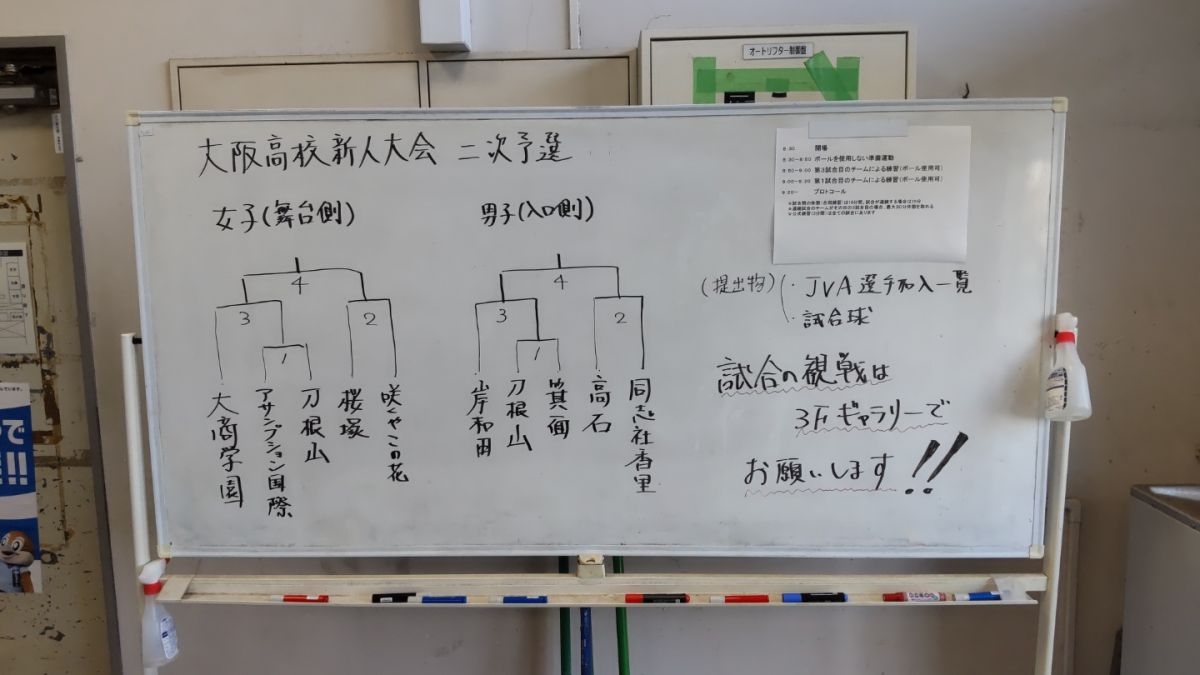 オートリフター制御盤
大阪高校新人大会 二次予選
女子(舞台側)
男子(入口側)
4
3
2
1
大商学園
アサンプション国際
刀根山
桜塚
咲くやこの花
4
3
2
1
岸和田
刀根山
箕面
高石
同志社香里
8:30 開場
8:30~8:50 ボールを使用しない準備運動
8:50~9:00 第3試合目のチームによる練習(ボール使用可)
9:00~9:20 第1試合目のチームによる練習(ボール使用可)
9:20~ プロトコール
(提出物)
・JVA選手加入一覧
・試合球
試合の観戦は
3Fギャラリーで
お願いします!!
で
!!!